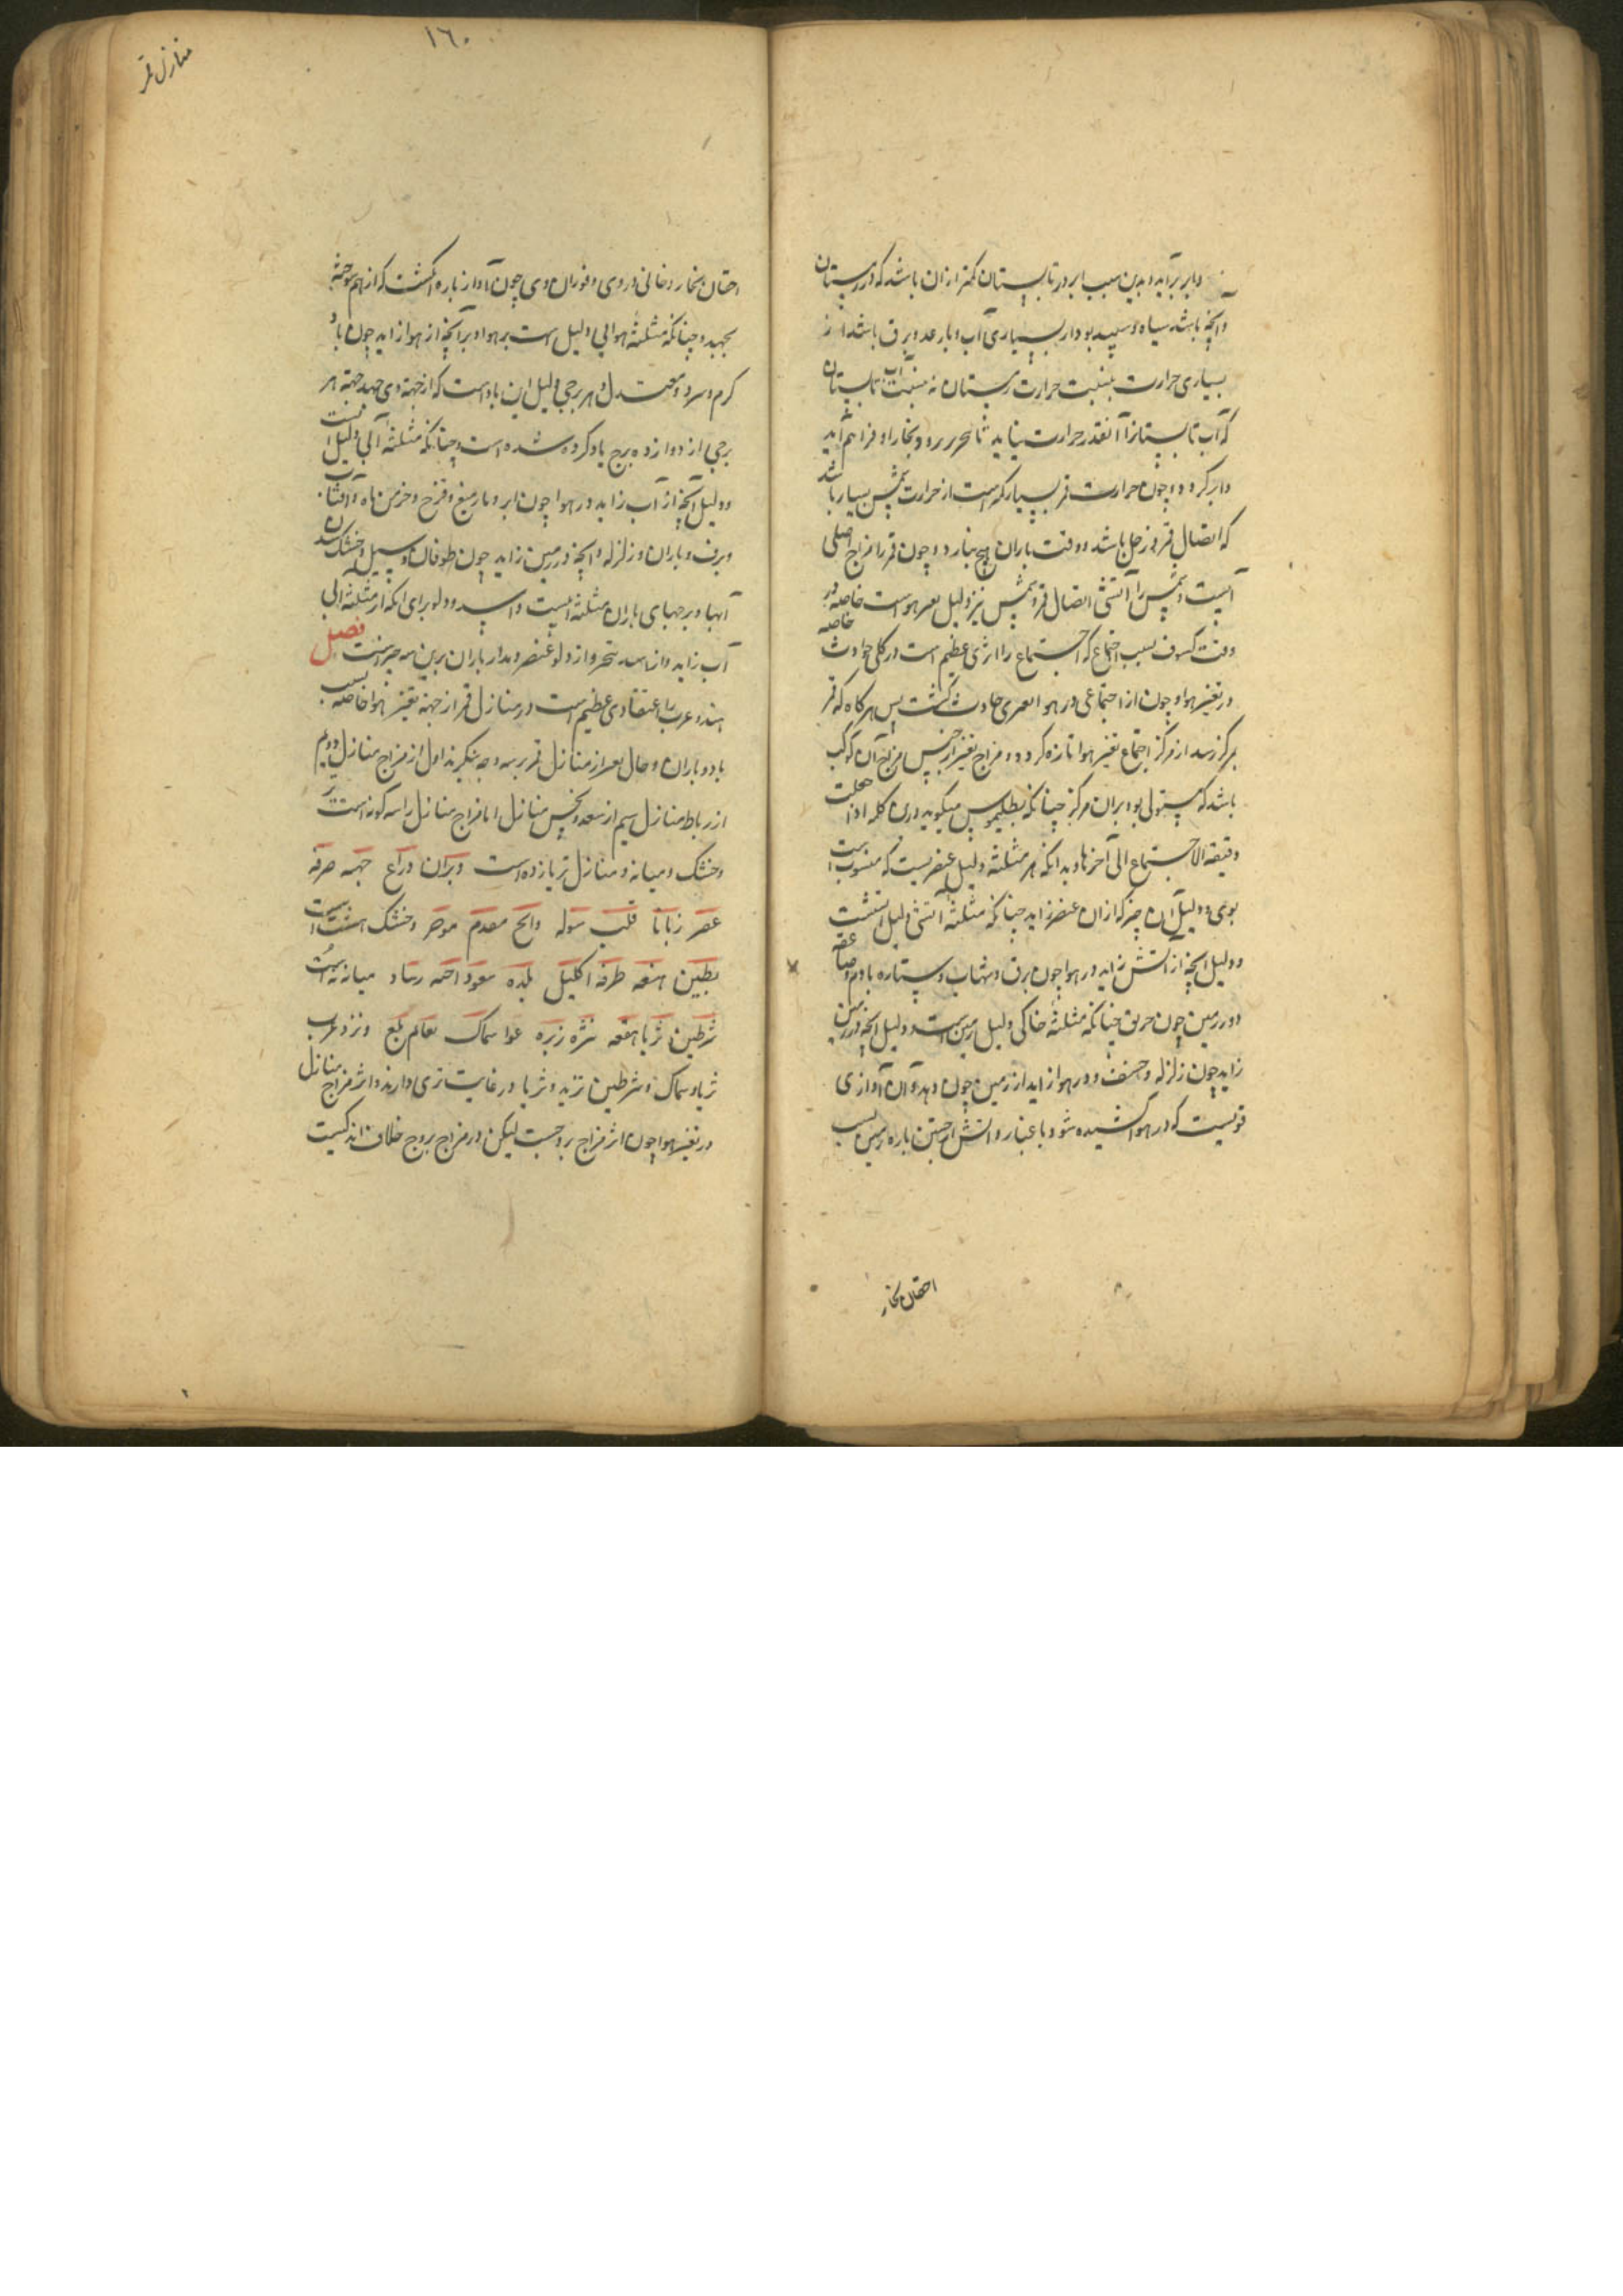 و ابر برآید و بدین سبب ابر در تابستان کمتر ازان باشد که در زمستان
و آنچه باشد سیاه و سپید بود از بسیاری آب و با رعد و برق باشد از
بسیاری حرارت بنسبت حرارت زمستان نه بنسبت آب تابستان
که آب تابستانرا آنقدر حرارت بباید تا بحرارت رود و بخار او فراهم آید
و ابر گردد و چون حرارت قمر بسیار کم است از حرارت شمس بسیار باشد
که اتصال قمر و زحل باشد و وقت باران هیچ نبارد و چون قمر را مزاج اصلی
آبیست و شمس را آتشی اتصال قمر و شمس نیز دلیل تغیر هواست خاصه در
وقت کسوف بسبب اجتماع که اجتماع را اثری عظیم است در کلی حوادث خاصه
در تغیر هوا و چون از اجتماعی در هوا تغیری حادث گشت پس هرگاه که قمر
بمرکز رسد از مرکز اجتماع تغیر هوا تازه گردد و مزاج تغیر از جنس مزاج آن کوکب
باشد که مستولی بود بران مرکز چنانکه بطلیموس میگوید درین کلمه اذا حصلت
دقیقة الاجتماع الی آخرها و بدانکه هر مثلثه دلیل عنصریست که منسوب است
بوی و دلیل آن چیز که ازان عنصر زاید چنانکه مثلثه آتشی دلیل آتشست
و دلیل آنچه از آتش زاید در هوا چون برق و شهاب و ستاره بادم و صاعقه
و در زمین چون حریق چنانکه مثلثه خاکی دلیل زمین است و دلیل آنچه در زمین
زاید چون زلزله و خسف و در هوا زاید از زمین چون هده و آن آوازی
قویست که در هوا شنیده شود با غبار و آتش از جستن پاره زمین بسبب
احتقان بخار
۱۶۰
منازل قمر
احتقان بخار دخانی در وی و فوران وی چون آواز پاره انگشت که از هم سوخته
بجهد و چنانکه مثلثه هوایی دلیل است بر هوا و بر آنچه از هوا زاید چون باد
گرم و سرد و معتدل و هر برجی دلیل این باد است که از جهة وی جهد جهة هر
برجی از دوازده برج یاد کرده شده است و چنانکه مثلثه آبی دلیل آبست
و دلیل آنچه از آب زاید در هوا چون ابر و باد و میغ و قزح و خرمن ماه و آفتاب
و برف و باران و زلزله و آنچه در زمین زاید چون طوفان و سیل و خشک شدن
آبها و برجهای باران مثلثه آبیست و اسد و دلو برای آنکه از مثلثه آبی
آب زاید و از اسد تبخر و از دلو عنصر و مدار باران برین سه چیز است فصل
هند و عرب را اعتقادی عظیم است در منازل قمر از جهة تغیر هوا خاصه بسبب
باد و باران و حال تغیر از منازل قمر بر سه وجه بنگرند اول از مزاج منازل دویم
از رباط منازل سیم از سعد و نحس منازل اما مزاج منازل را سه گونه است تر
و خشک و میانه و منازل تر یازده است دبران ذراع جبهه صرفه
غفر زبانا قلب شوله ذابح مقدم موخر و خشک هشت است
بطین هنعه طرفه اکلیل بلده سعود اخبیه رشاد میانه نه است
شرطین ثریا هقعه نثره زبره عوا سماک نعایم بلع و نزد عرب
ثریا و سماک و شرطین ترند و ثریا در غایت تری دارند و اثر مزاج منازل
در تغیر هوا چون اثر مزاج بروجست لیکن در مزاج بروج خلاف اندکیست